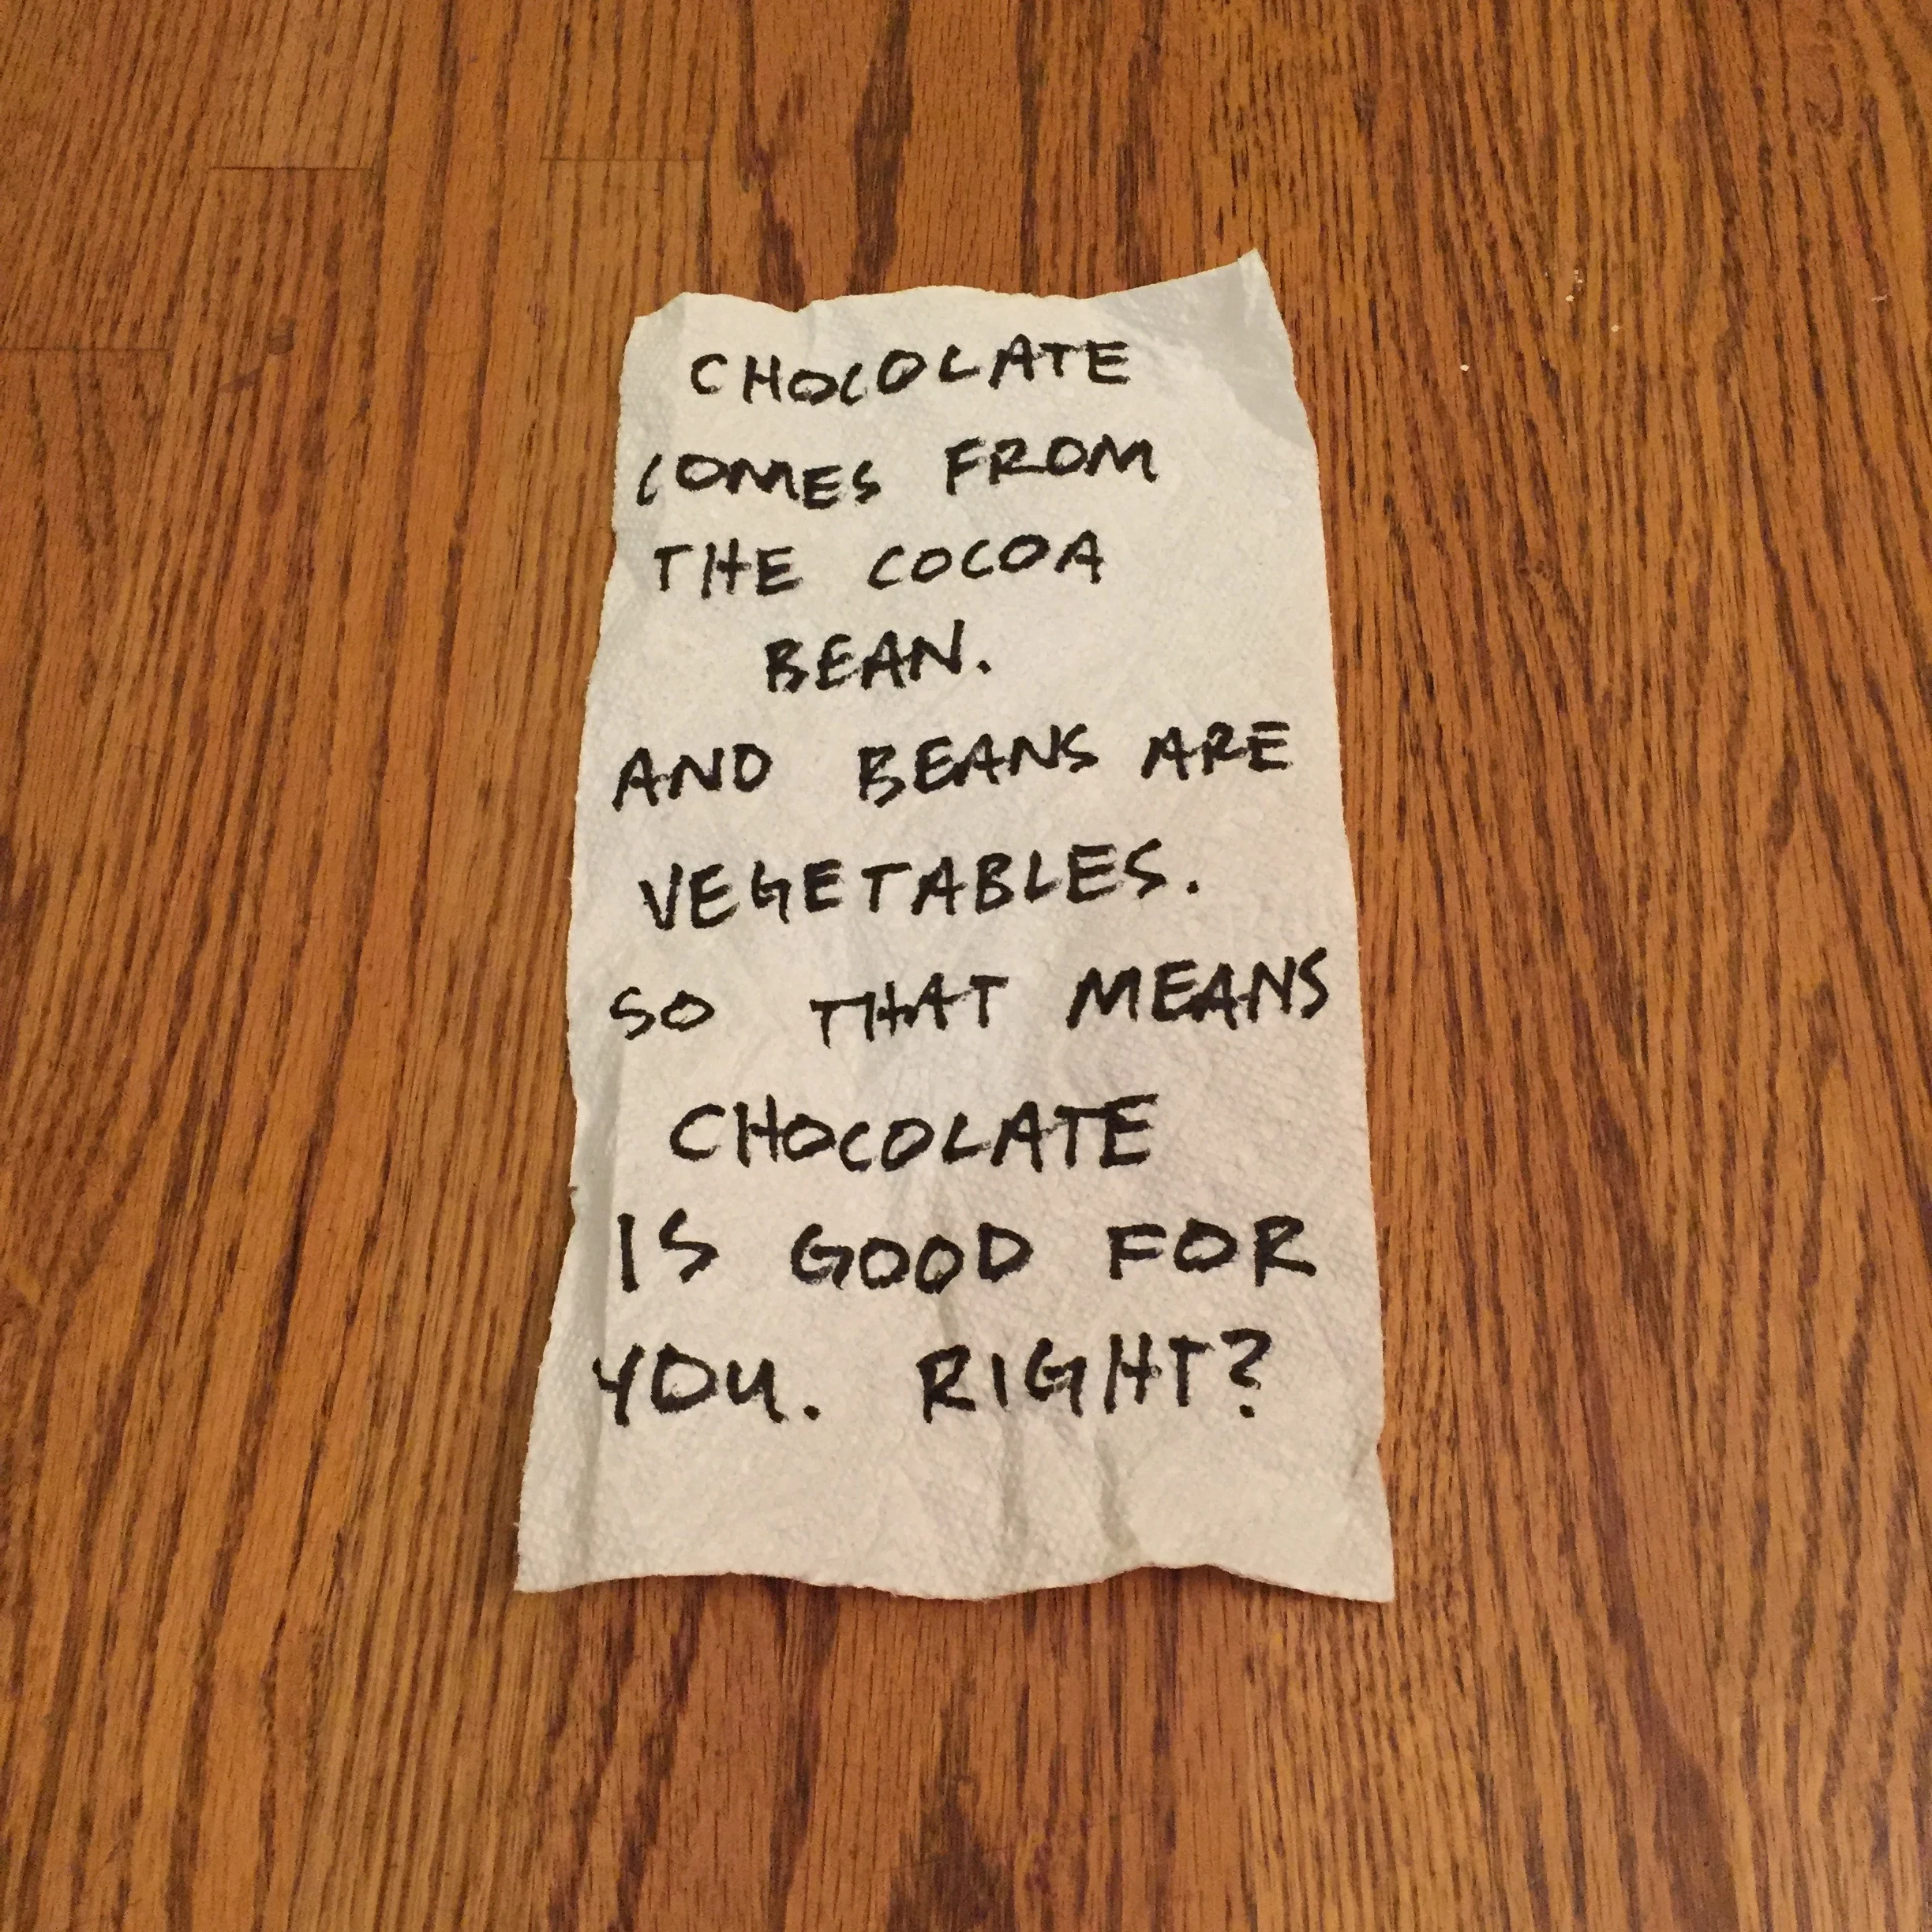 CHOCOLATE
COMES FROM
THE COCOA
BEAN.
AND BEANS ARE
VEGETABLES.
SO THAT MEANS
CHOCOLATE
IS GOOD FOR
YOU. RIGHT?